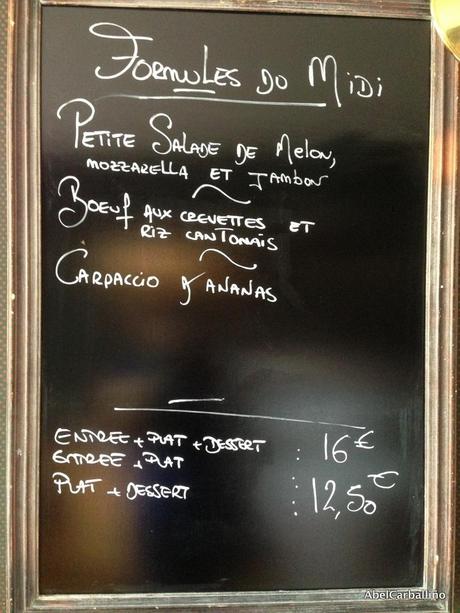 Formules do Midi
Petite Salade de Melon,
mozzarella et Jambon
Boeuf aux crevettes et
riz cantonais
Carpaccio d'ananas
Entree + Plat + Dessert : 16€
Entree + Plat
Plat + Dessert : 12,50€
AbelCarballino